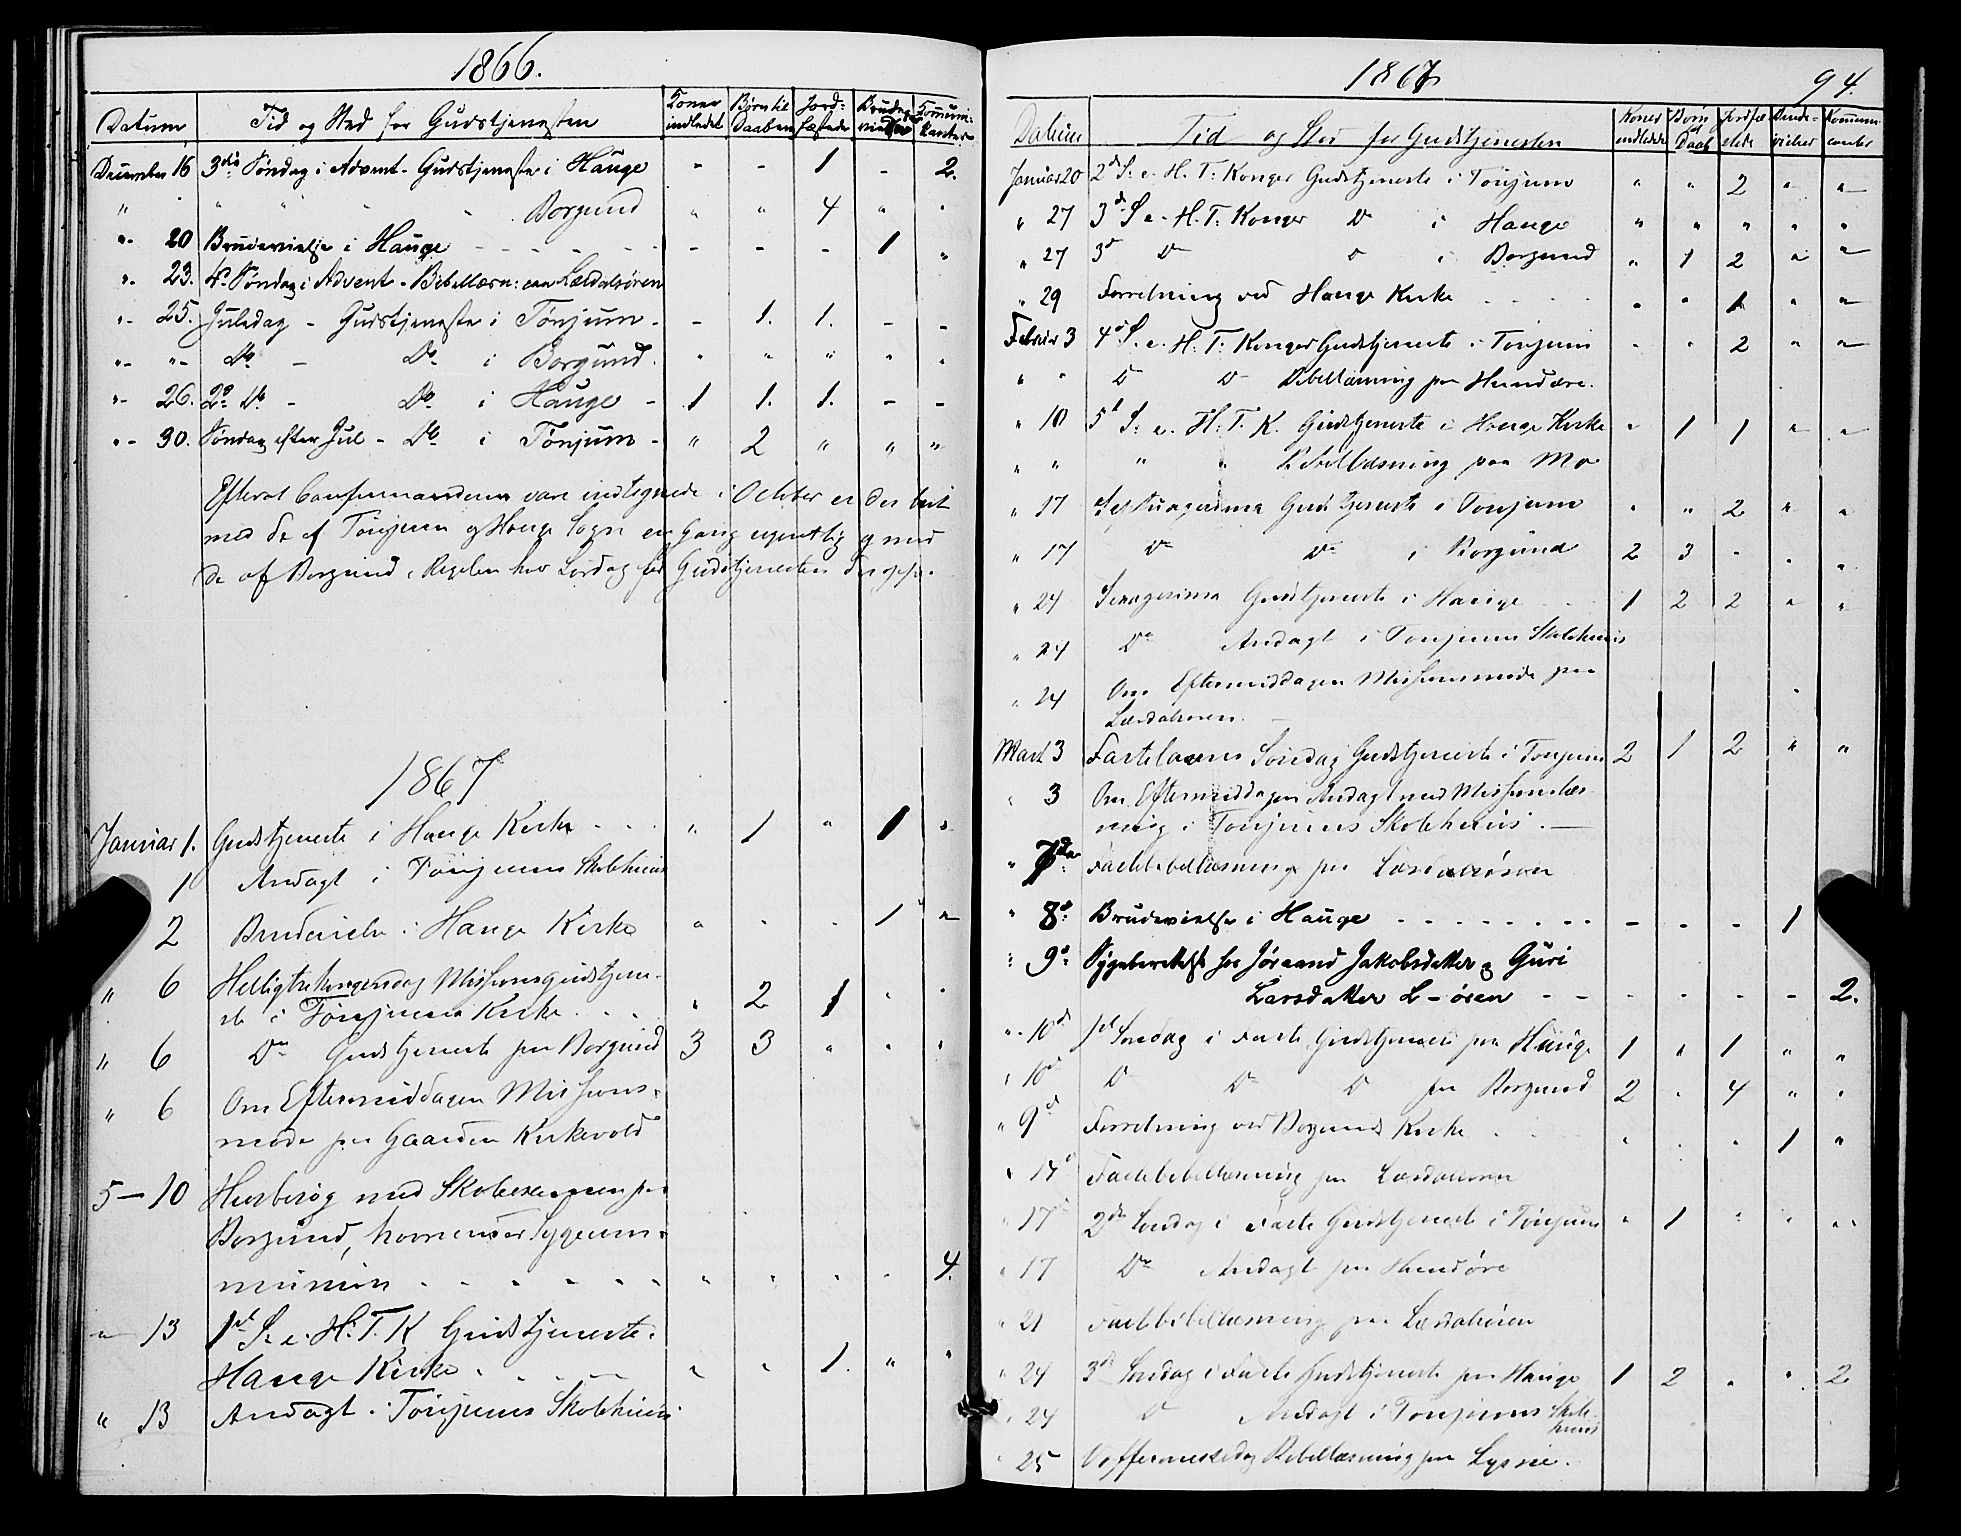 1866.
Datum Tid og Sted for Gudstjenesten Koner indledet Børn til Daaben Jordfæstede Brudevielser Kommunikanter
December 16 3die Søndag i Advent - Gudstjeneste i Hauge - - 1 - 2.
" " " " Borgund " " 4 " "
"- 20 Brudevielse i Hauge - - - - - - - 1 "
"- 23. 4de Søndag i Advent - Bibellæsn: paa Lærdalsøren
"- 25. Juledag - Gudstjeneste i Tønjum - - 1. 1. - -
"- "- Do - Do i Borgund. " " " " "
"- 26. 2den Do - Do i Hauge - 1 1. 1. - -
"- 30. Søndag efter Jul - Do i Tønjum - " 2 " " "
Efterat Confirmanderne vare indtegnede i October er der læst
med de af Tønjum og Hauge Sogn en Gang ugentlig og med
de af Borgund i Regelen hver Lørdag før Gudstjenesten
1867
Januar 1. Gudstjeneste i Hauge Kirke - - - " 1 " 1 "
1 Andagt i Tønjums Skolehuus
2 Brudevielse i Hauge Kirke " - - 1 "
" 6 Helligtrekongersdag Missionsgudstjene-
ste i Tønjums Kirke - - - " 2 1 " "
" 6 Do Gudstjeneste paa Borgund 3 3 " " "
" 6 Om Eftermiddagen Missions-
møde paa Gaarden Kirkevold
5 - 10 Huusbesøg med Skoleexamen paa
Borgund, hvorunder Sygecom-
munion - - - - - - " " " - 4.
" 13 1st S. e. H. T. K Gudstjeneste i
Hauge Kirke - - - - " " 1. " "
" 13 Andagt i Tønjums Skolehuus
1867 94.
Datum Tid og Sted for Gudstjenesten Koner indledte Børn til Daab Jordfæstede Brudevielser Kommunicanter
Januar 20 2d S. e. H. T. Konger Gudstjeneste i Tønjum " " 2 " "
" 27 3d S. e. H. T. Konger Do i Hauge " " " " "
" 27 3d Do Do i Borgund " 1 2 " "
" 29 Forretning ved Hauge Kirke - - - - " " 1 " "
Februar 3 4d S. e. H. T. Konger Gudstjeneste i Tønjum " " 2 " "
" " Do Do Bibellæsning paa Hunderi.
" 10 5d S. e. H. T. K. Gudstjeneste i Hauge Kirke " 1 1 " "
" " " " Bibellæsning paa Mo
" 17 Septuagesima Gudstjeneste i Tønjum " " 2 " "
" 17 Do Do i Borgund 2 3 - - "
" 24 Sexagesima Gudstjeneste i Hauge - - 1 2 2 " "
" 24 Do Andagt i Tønjums Skolehuus
" 24 Om Eftermiddagen Missionsmøde paa
Lærdalsøren. -
Mart 3 Fastelavns Søndag Gudstjeneste i Tønjum 2 1 2 " "
" 3 Om Eftermiddagen Andagt med Missionslæs-
ning i Tønjums Skolehuus. -
" 7de Fastebibellæsning paa Lærdalsøren
" 8d Brudevielse i Hauge - - - - - - - - - - - 1
" 9d Sygeberettelse hos Jøraand Jakobsdatter og Guri
Larsdatter L-øren - - - - - - 2.
"- 10d 1st Søndag i Faste Gudstjeneste paa Hauge 1 " 1 " "
" 10d Do Do Do paa Borgund 2 " 4 " "
" 9d Forretning ved Borgunds Kirke - - - " " " 1 "
" 14d Fastebibellæsning paa Lærdalsøren
" 17d 2den Søndag i Faste Gudstjeneste i Tønjum " 1 " " "
" 17 Do Andagt paa
" 21 Fastebibellæsning paa Lærdalsøren
" 24 3de Søndag i Faste Gudstjeneste paa Hauge 1 2 " " 2
" 24 Do Andagt i Tønjums Skole-
huus
" 25 Bibellæsning paa